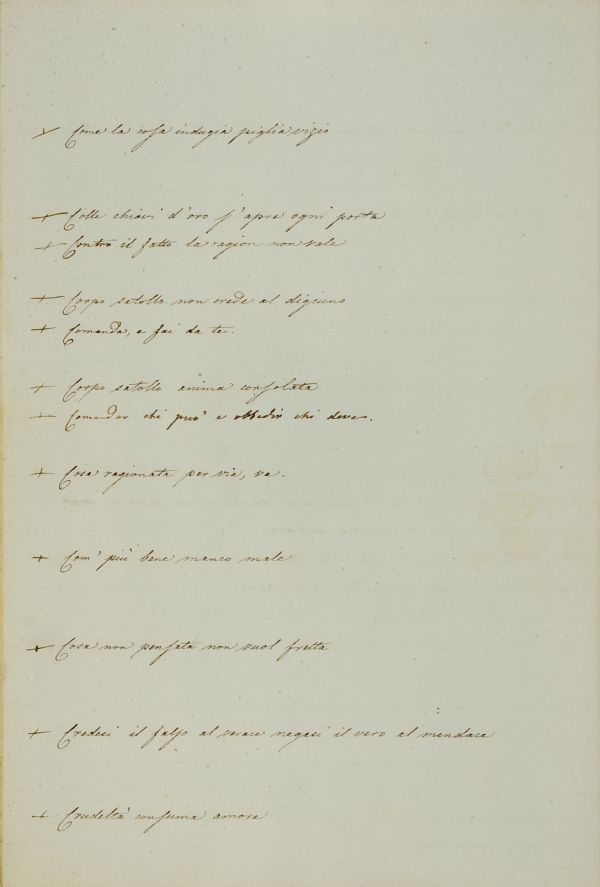 Come la cosa indugia piglia vizio
+ Colle chiavi d'oro s'apre ogni porta
+ Contro il fatto la ragion non vale
+ Corpo satollo non crede al digiuno
+ Comanda, e fai da te.
+ Corpo satollo anima consolata
+ Comandar chi può e obbedir chi deve.
+ Cosa ragionata per via, va.
+ Com' più bene manco male
+ Cosa non pensata non vuol fretta
+ Credesi il falso al verace negasi il vero al mendace
+ Crudeltà consuma amore